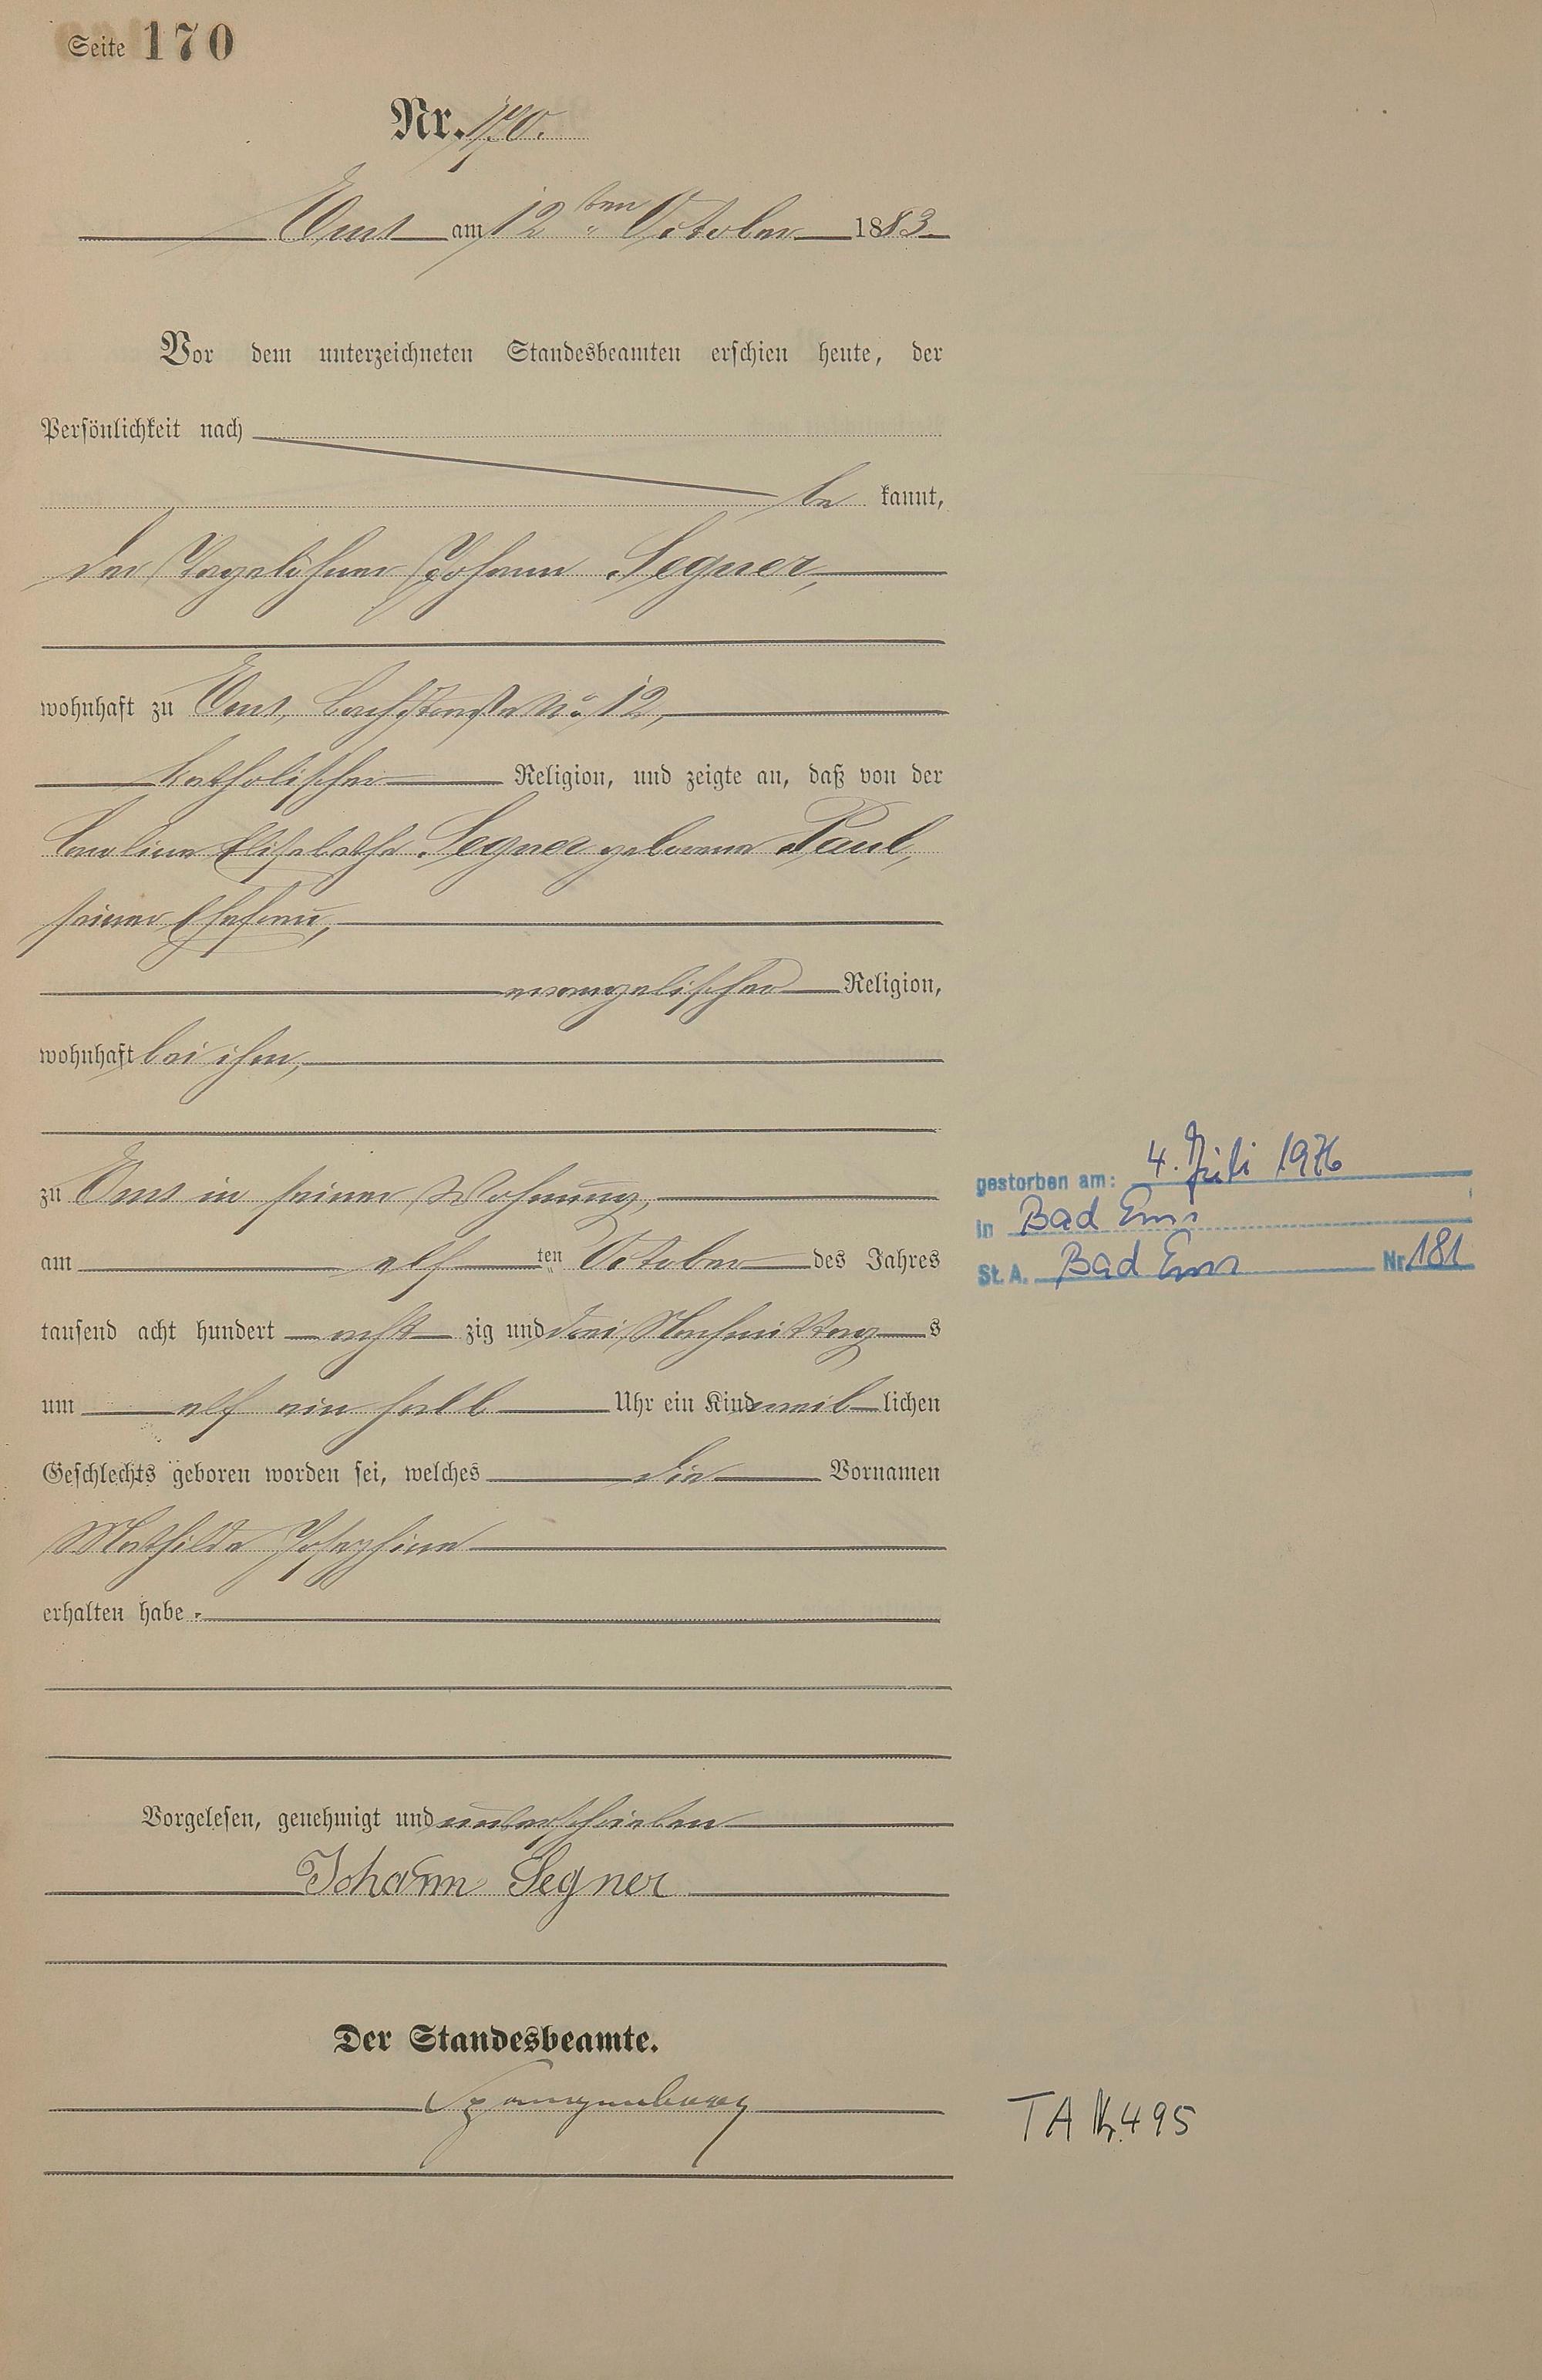 Seite 170
Nr. 170.
Ems am 12ten October 1883
Vor dem unterzeichneten Standesbeamten erschien heute, der
Persönlichkeit nach
be kannt,
der Tagelöhner Johann Segner,
wohnhaft zu Ems, No 12,
katholischer Religion, und zeigte an, daß von der
Caroline Elisabethe Segner geborene Paul,
seiner Ehefrau,
evangelischer Religion,
wohnhaft bei ihm,
zu Ems in seiner Wohnung,
am elf ten October des Jahres
tausend acht hundert acht zig und drei Nachmittag s
um elf ein halb Uhr ein Kind weib lichen
Geschlechts geboren worden sei, welches die Vornamen
Mathilde Josephine
erhalten habe.
Vorgelesen, genehmigt und unterschrieben
Johann Segner
Der Standesbeamte.
Spangenberg
gestorben am: 4. Juli 1976
in Bad Ems
St. A. Bad Ems Nr 181
TA Nr. 495